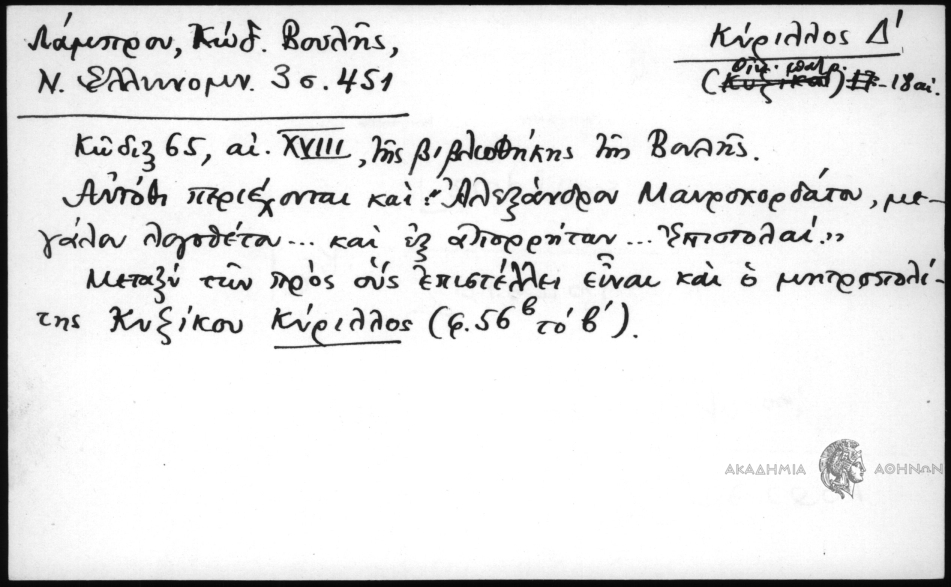 Λάμπρου, Κώδ. Βουλῆς,
Ν. Ἑλληνομν. 3 σ. 451
Κύριλλος Δ'
οἰκ. πατρ.
(Κυζίκου) 17-18 αἰ.
Κῶδιξ 65, αἰ. XVIII, τῆς βιβλιοθήκης τῆς Βουλῆς.
Αὐτόθι περιέχονται καὶ: "Ἀλεξάνδρου Μαυροκορδάτου, με-
γάλου λογοθέτου... καὶ ἐξ ἀπορρήτων... Ἐπιστολαί."
Μεταξὺ τῶν πρὸς οὓς ἐπιστέλλει εἶναι καὶ ὁ μητροπολί-
της Κυζίκου Κύριλλος (φ. 56β τὸ β').
ΑΚΑΔΗΜΙΑ ΑΘΗΝΩΝ